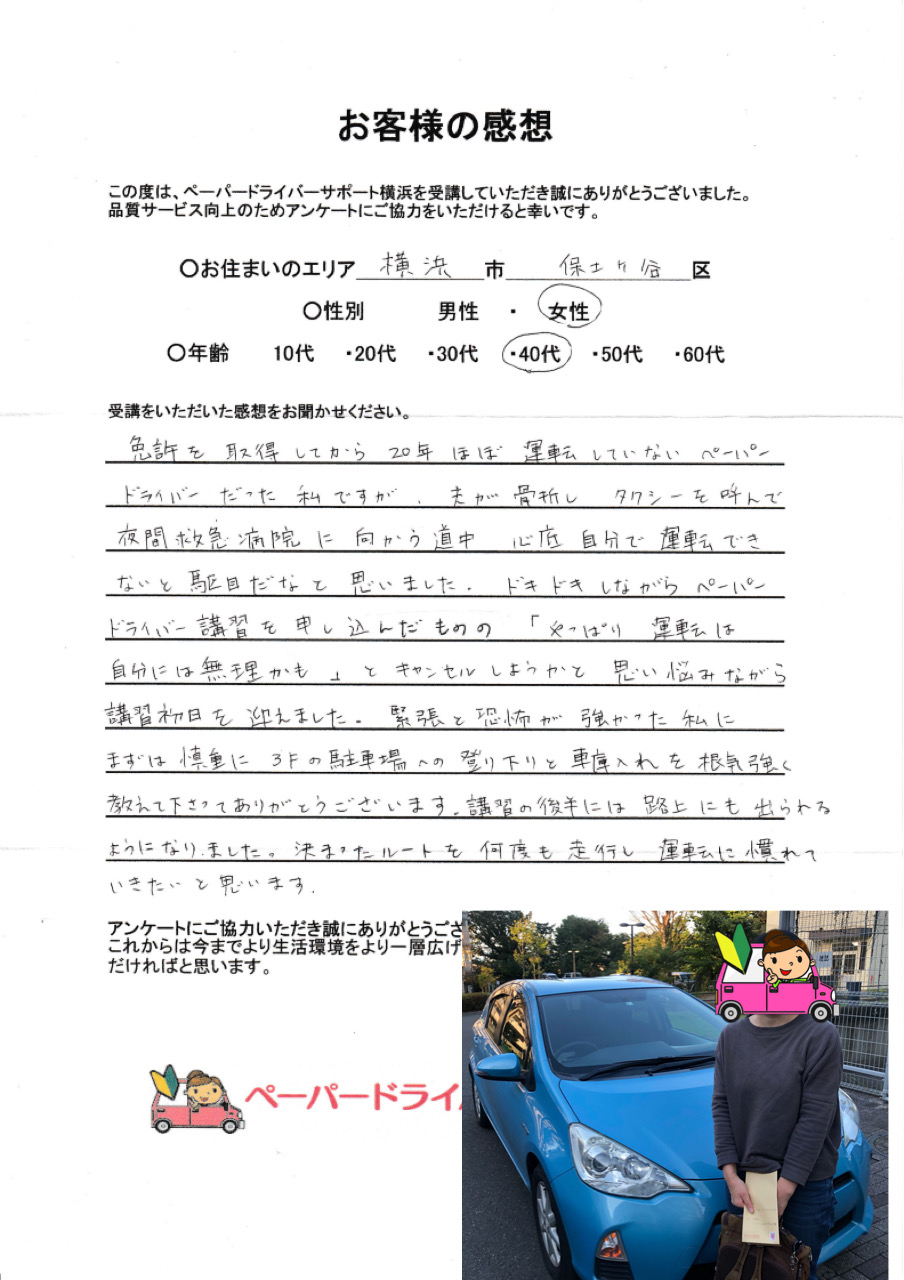 お客様の感想
この度は、ペーパードライバーサポート横浜を受講していただき誠にありがとうございました。
品質サービス向上のためアンケートにご協力をいただけると幸いです。
〇お住まいのエリア 横浜 市 保土ヶ谷 区
〇性別 男性 ・ 女性
〇年齢 10代 ・20代 ・30代 ・40代 ・50代 ・60代
受講をいただいた感想をお聞かせください。
免許を取得してから20年ほぼ運転していないペーパー
ドライバーだった私ですが、夫が骨折しタクシーを呼んで
夜間救急病院に向かう道中 心底自分で運転でき
ないと駄目だなと思いました。ドキドキしながらペーパー
ドライバー講習を申し込んだものの「やっぱり運転は
自分には無理かも」とキャンセルしようかと思い悩みながら
講習初日を迎えました。緊張と恐怖が強かった私に
まずは慎重に3Fの駐車場への登り下りと車庫入れを根気強く
教えて下さってありがとうございます。講習の後半には路上にも出られる
ようになりました。決まったルートを何度も走行し運転に慣れて
いきたいと思います。
アンケートにご協力いただき誠にありがとうござ
これからは今までより生活環境をより一層広げ
だければと思います。
ペーパードライ